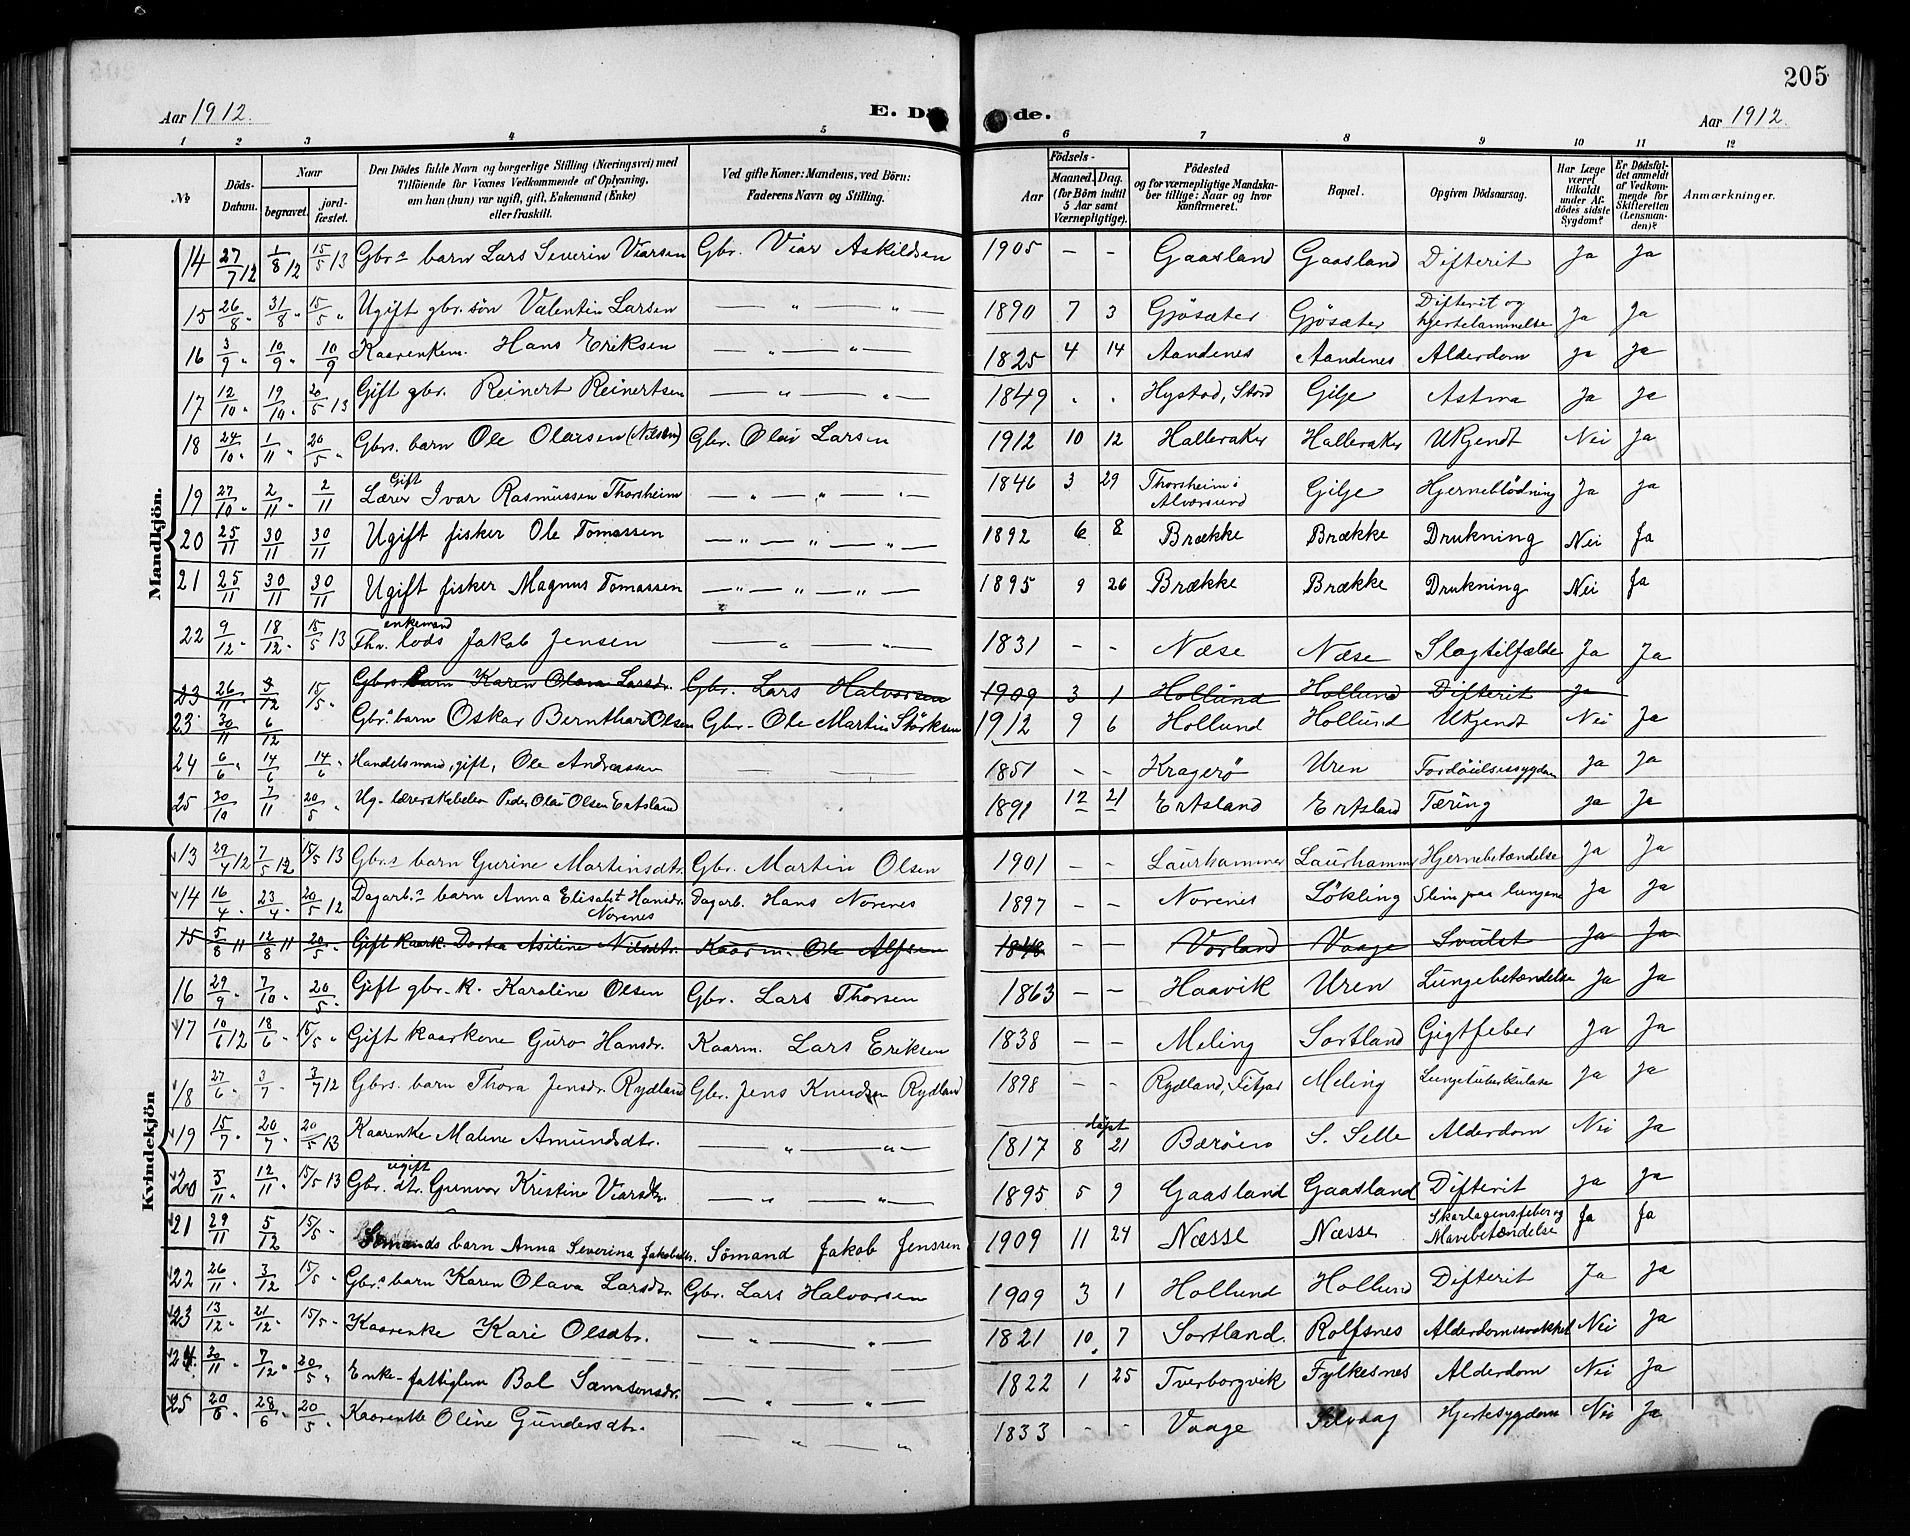 205
Aar 1912. E. Dö de. Aar 1912.
1 2 3 4 5 6 7 8 9 10 11 12
No. Döds-Datum. Naar begravet. jordfæstet. Den Dödes fulde Navn og borgerlige Stilling (Næringsvei) med Tilföiende for Voxnes Vedkommende af Oplysning, om han (hun) var ugift, gift, Enkemand (Enke) eller fraskilt. Ved gifte Koner: Mandens, ved Börn: Faderens Navn og Stilling. Födsels- Aar Maaned. Dag. (for Börn indtil 5 Aar samt Værnepligtige). Födested og for værnepligtige Mandskaber tillige: Naar og hvor konfirmeret. Bopæl. Opgiven Dödsaarsag. Har Læge været tilkaldt under Afdödes sidste Sygdom? Er Dödsfaldet anmeldt af Vedkommende for Skifteretten (Lensmanden)? Anmærkninger.
Mandkjön.
14 27/7 12 1/8 12 15/5 13 Gbr.s barn Lars Severin Viarsen Gbr. Viar Askildsen 1905 – – Gaasland Gaasland Difterit Ja Ja
15 26/8 " 31/8 " 15/5 " Ugift gbr.søn Valentin Larsen — " — " — 1890 7 3 Gjøsæter Gjøsæter Difterit og hjertelammelse Ja Ja
16 3/9 " 10/9 " 10/9 Kaarenkem. Hans Eriksen — " — " — 1825 4 14 Aandenes Aandenes Alderdom Ja Ja
17 12/10 " 19/10 " 20/5 13 Gift gbr. Reinert Reinertsen — " — " — 1849 " " Hystad, Stord Gilje Astma Ja Ja
18 24/10 " 1/11 " 20/5 " Gbrs. barn Ole Olavsen (Nilsen) Gbr. Olai Larsen 1912 10 12 Halleraker Halleraker Ukjendt Nei Ja
19 27/10 " 2/11 " 2/11 Gift Lærer Ivar Rasmussen Thorsheim — " — " — " — 1846 3 29 Thorsheim i Alversund Gilje Hjerneblödning Ja Ja
20 25/11 30/11 30/11 Ugift fisker Ole Tomassen — " — " — " — 1892 6 8 Brække Brække Drukning Nei Ja
21 25/11 30/11 30/11 Ugift fisker Magnus Tomassen — " — " — " — 1895 9 26 Brække Brække Drukning Nei Ja
22 9/12 " 18/12 " 15/5 13 enkemand Thv. lods Jakob Jensen — " — " — 1831 – – Næse Næse Slagtilfælde Ja Ja
23 26/11 3/12 15/5 " Gbrs. barn Karen Olava Larsdr. Gbr. Lars Halvorsen 1909 3 1 Hollund Hollund Difterit Ja
23 30/11 6/12 Gbr.s barn Oskar Bernthard Olsen Gbr. Ole Martin Störksen 1912 9 6 Hollund Hollund Ukjendt Nei Ja
24 6/6 " 14/6 14/6 " Handelsmand, gift, Ole Andreassen — — — 1851 – – Kragerö Uren Fordöielsessygdom Ja Ja
25 30/10 7/11 20/5 " Ug. lærerskoleelev Peder Olai Olsen Ertsland 1891 12 21 Ertsland Ertsland Tæring Ja Ja
Kvindekjön
13 29/4 12 7/5 12 15/5 13 Gbr.s barn Gurine Martinsdtr. Gbr. Martin Olsen 1901 – – Laurhammer Laurhammer Hjernebetændelse Ja Ja
14 16/4 " 23/4 " 20/5 12 Dagarb.s barn Anna Elisabet Hansdr. Norenes Dagarb. Hans Norenes 1897 – – Norenes Lökling Slim paa lungene Ja Ja
15 5/8 11 12/8 11 20/5 " Gift kaark. Dorta Asiline Nilsdtr. Kaarm. Ole Alfsen 1848 – – Vorland Vaage Svulst Ja Ja
16 29/9 " 7/10 " 20/5 " Gift gbr.k. Karoline Olsen Gbr. Lars Thorsen 1863 – – Haavik Uren Lungebetændelse Ja Ja
17 10/6 12 18/6 " 15/5 " Gift kaarkone Guro Hansdr. Kaarm. Lars Eriksen 1838 – – Meling Sortland Gigtfeber Ja Ja
18 27/6 " 3/7 " 3/7 12 Gbrs. barn Thora Jensdr. Rydland Gbr. Jens Knudsen Rydland 1898 – – Rydland, Fitjar Meling Lungetuberkulose Ja Ja
19 15/7 " 20/7 " 20/5 13 Kaarenke Malene Amundsdtr. — " — " — 1817 døpt 8 21 Bæröen S. Selle Alderdom Nei Ja
20 5/11 " 12/11 " 15/5 13 ugift Gbr. dtr. Gunvor Kristine Viarsdtr. — " — " — 1895 5 9 Gaasland Gaasland Difterit Ja Ja
21 29/11 5/12 15/5 " Sömands barn Anna Severina Jakobsdtr. Sömand Jakob Jenssen 1909 11 24 Næsse Næsse Skarlagensfeber og Mavebetændelse Ja Ja
22 26/11 " 3/12 15/5 " Gbr.s barn Karen Olava Larsdtr. Gbr. Lars Halvorsen 1909 3 1 Hollund Hollund Difterit Ja Ja
23 13/12 " 21/12 " 15/5 " Kaarenke Kari Olsdtr. — " — " — 1821 10 7 Sortland Rolfsnes Alderdomssvakhet Nei Ja
24 30/11 " 7/12 " 20/5 " Enke-fattiglem Bol Samsonsdr. — " — " — 1822 1 25 Tverborgvik Fylkesnes Alderdom Nei Ja
25 20/6 " 28/6 " 20/5 " Kaarenke Oline Gundersdtr. — " — " 1833 – – Vaage Selvaag Hjertesygdom Nei Ja